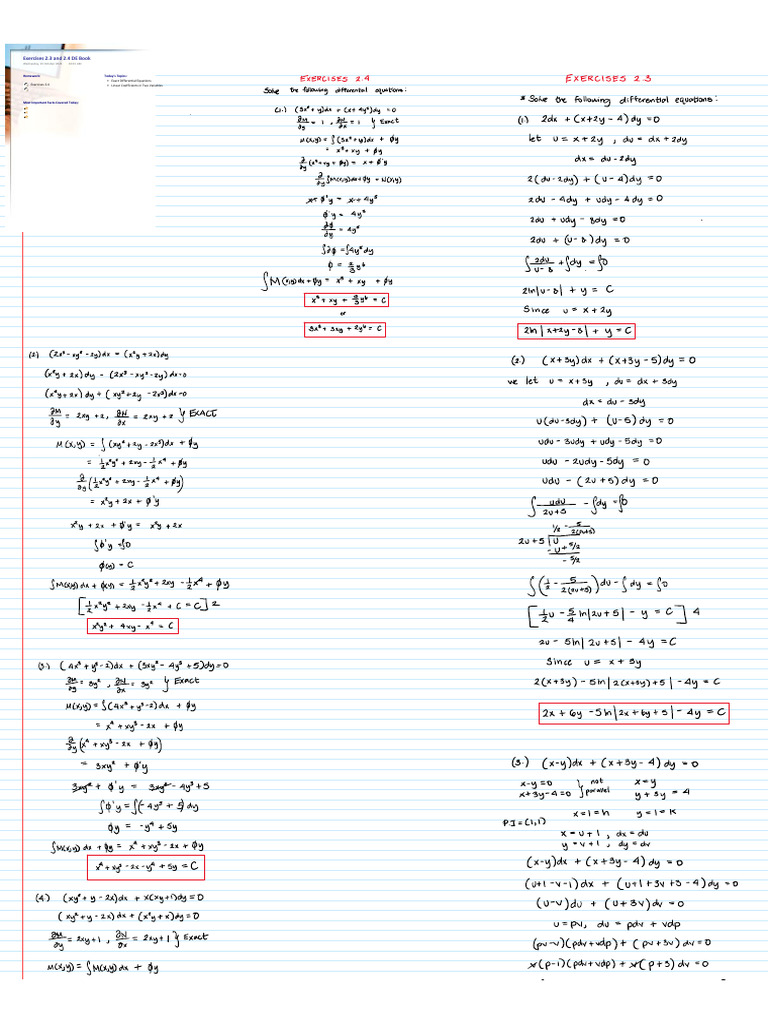 Exercises 2.3 and 2.4 DE Book
Homework
Exercises 2.4
Most Important Facts Covered Today:
Today's Topics:
Exact Differential Equations
Linear Coefficients in Two Variables
EXERCISES 2.4
Solve the following differential equations:
(1.) (3x² + y)dx + (x + 4y⁵)dy = 0
∂M/∂y = 1 , ∂N/∂x = 1 } EXACT
M(x,y) = ∫(3x² + y)dx + φy
= x³ + xy + φy
∂/∂y (x³ + xy + φy) = x + φ'y
∂/∂y ∫M(x,y)dx + φy = N(x,y)
x + φ'y = x + 4y⁵
φ'y = 4y⁵
∂φ/∂y = 4y⁵
∫∂φ = ∫4y⁵dy
φ = 2/3 y⁶
∫M(x,y)dx + φy = x³ + xy + φy
x³ + xy + 2/3 y⁶ = C
or
3x³ + 3xy + 2y⁶ = C
(2.) (2x³ - xy² - 2y)dx = (x²y + 2x)dy
(x²y + 2x)dy - (2x³ - xy² - 2y)dx = 0
(x²y + 2x)dy + (xy² + 2y - 2x³)dx = 0
∂M/∂y = 2xy + 2 , ∂N/∂x = 2xy + 2 } EXACT
M(x,y) = ∫(xy² + 2y - 2x³)dx + φy
= 1/2 x²y² + 2xy - 1/2 x⁴ + φy
∂/∂y (1/2 x²y² + 2xy - 1/2 x⁴ + φy)
= x²y + 2x + φ'y
x²y + 2x + φ'y = x²y + 2x
∫φ'y = ∫0
φ(y) = C
∫M(x,y)dx + φ(y) = 1/2 x²y² + 2xy - 1/2 x⁴ + φy
[1/2 x²y² + 2xy - 1/2 x⁴ + C = C] 2
x²y² + 4xy - x⁴ = C
(3.) (4x³ + y³ - 2)dx + (3xy² - 4y³ + 5)dy = 0
∂M/∂y = 3y² , ∂N/∂x = 3y² } EXACT
M(x,y) = ∫(4x³ + y³ - 2)dx + φy
= x⁴ + xy³ - 2x + φy
∂/∂y (x⁴ + xy³ - 2x + φy)
= 3xy² + φ'y
3xy² + φ'y = 3xy² - 4y³ + 5
∫φ'y = ∫(-4y³ + 5)dy
φy = -y⁴ + 5y
∫M(x,y)dx + φy = x⁴ + xy³ - 2x + φy
x⁴ + xy³ - 2x - y⁴ + 5y = C
(4.) (xy² + y - 2x)dx + x(xy + 1)dy = 0
(xy² + y - 2x)dx + (x²y + x)dy = 0
∂M/∂y = 2xy + 1 , ∂N/∂x = 2xy + 1 } EXACT
M(x,y) = ∫M(x,y)dx + φy
EXERCISES 2.3
* Solve the following differential equations:
(1.) 2dx + (x + 2y - 4)dy = 0
let u = x + 2y , du = dx + 2dy
dx = du - 2dy
2(du - 2dy) + (u - 4)dy = 0
2du - 4dy + udy - 4dy = 0
2du + udy - 8dy = 0
2du + (u - 8)dy = 0
∫2du/u-8 + ∫dy = ∫0
2ln|u - 8| + y = C
Since u = x + 2y
2ln|x + 2y - 8| + y = C
(2.) (x + 3y)dx + (x + 3y - 5)dy = 0
we let u = x + 3y , du = dx + 3dy
dx = du - 3dy
u(du - 3dy) + (u - 5)dy = 0
udu - 3udy + udy - 5dy = 0
udu - 2udy - 5dy = 0
udu - (2u + 5)dy = 0
∫udu/2u+5 - ∫dy = ∫0
1/2 - 5/2(2u+5)
2u + 5 | u
- u + 5/2
- 5/2
∫(1/2 - 5/2(2u+5))du - ∫dy = ∫0
[1/2 u - 5/4 ln|2u + 5| - y = C] 4
2u - 5ln|2u + 5| - 4y = C
Since u = x + 3y
2(x + 3y) - 5ln|2(x + 3y) + 5| - 4y = C
2x + 6y - 5ln|2x + 6y + 5| - 4y = C
(3.) (x - y)dx + (x + 3y - 4)dy = 0
x - y = 0 } not x = y
x + 3y - 4 = 0 } parallel y + 3y = 4
x = 1 = h y = 1 = k
P.I = (1,1)
x = u + 1 , dx = du
y = v + 1 , dy = dv
(x - y)dx + (x + 3y - 4)dy = 0
(u + 1 - v - 1)dx + (u + 1 + 3v + 3 - 4)dv = 0
(u - v)du + (u + 3v)dv = 0
u = pv, du = pdv + vdp
(pv - v)(pdv + vdp) + (pv + 3v)dv = 0
v(p - 1)(pdv + vdp) + v(p + 3)dv = 0